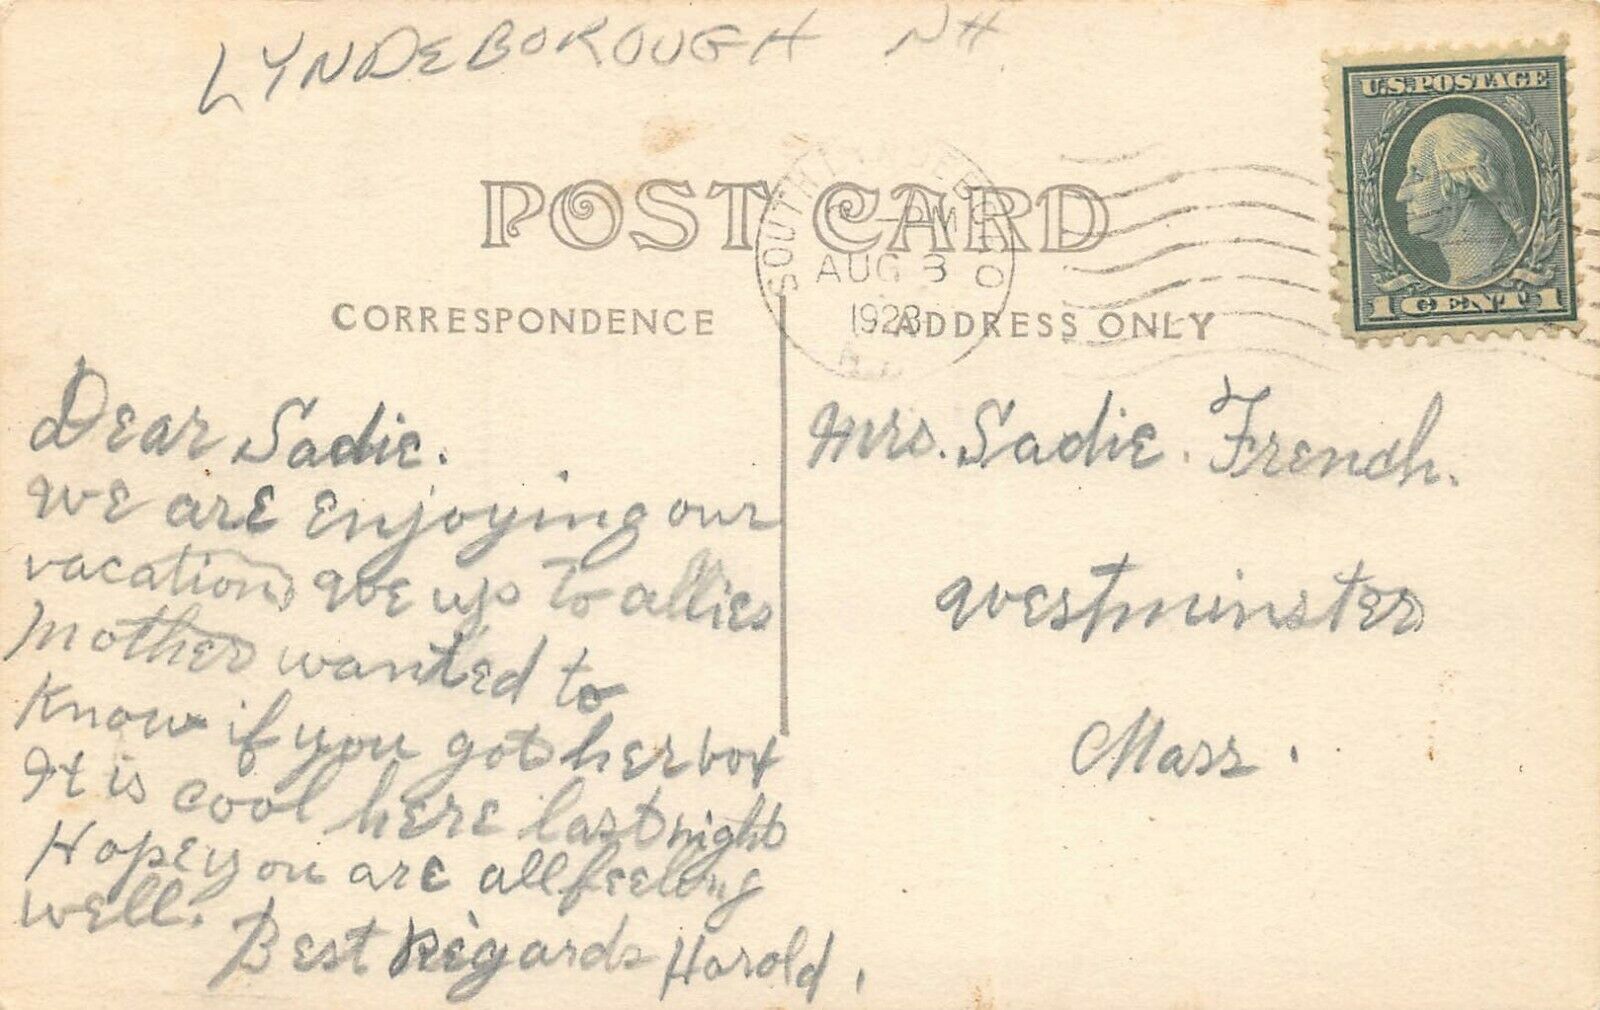 LYNDEBOROUGH NH
U.S. POSTAGE
1 CENT 1
POST CARD
SOUTH LYNDEBORO
PM
AUG 3
1923
N.
CORRESPONDENCE
ADDRESS ONLY
Dear Sadie.
We are enjoying our
vacation, We up to allies
Mother wanted to
Know if you got her box
It is cool here last night
Hope you are all feelong
well.
Best Regards Harold.
Mrs. Sadie. French.
Westminster
Mass.